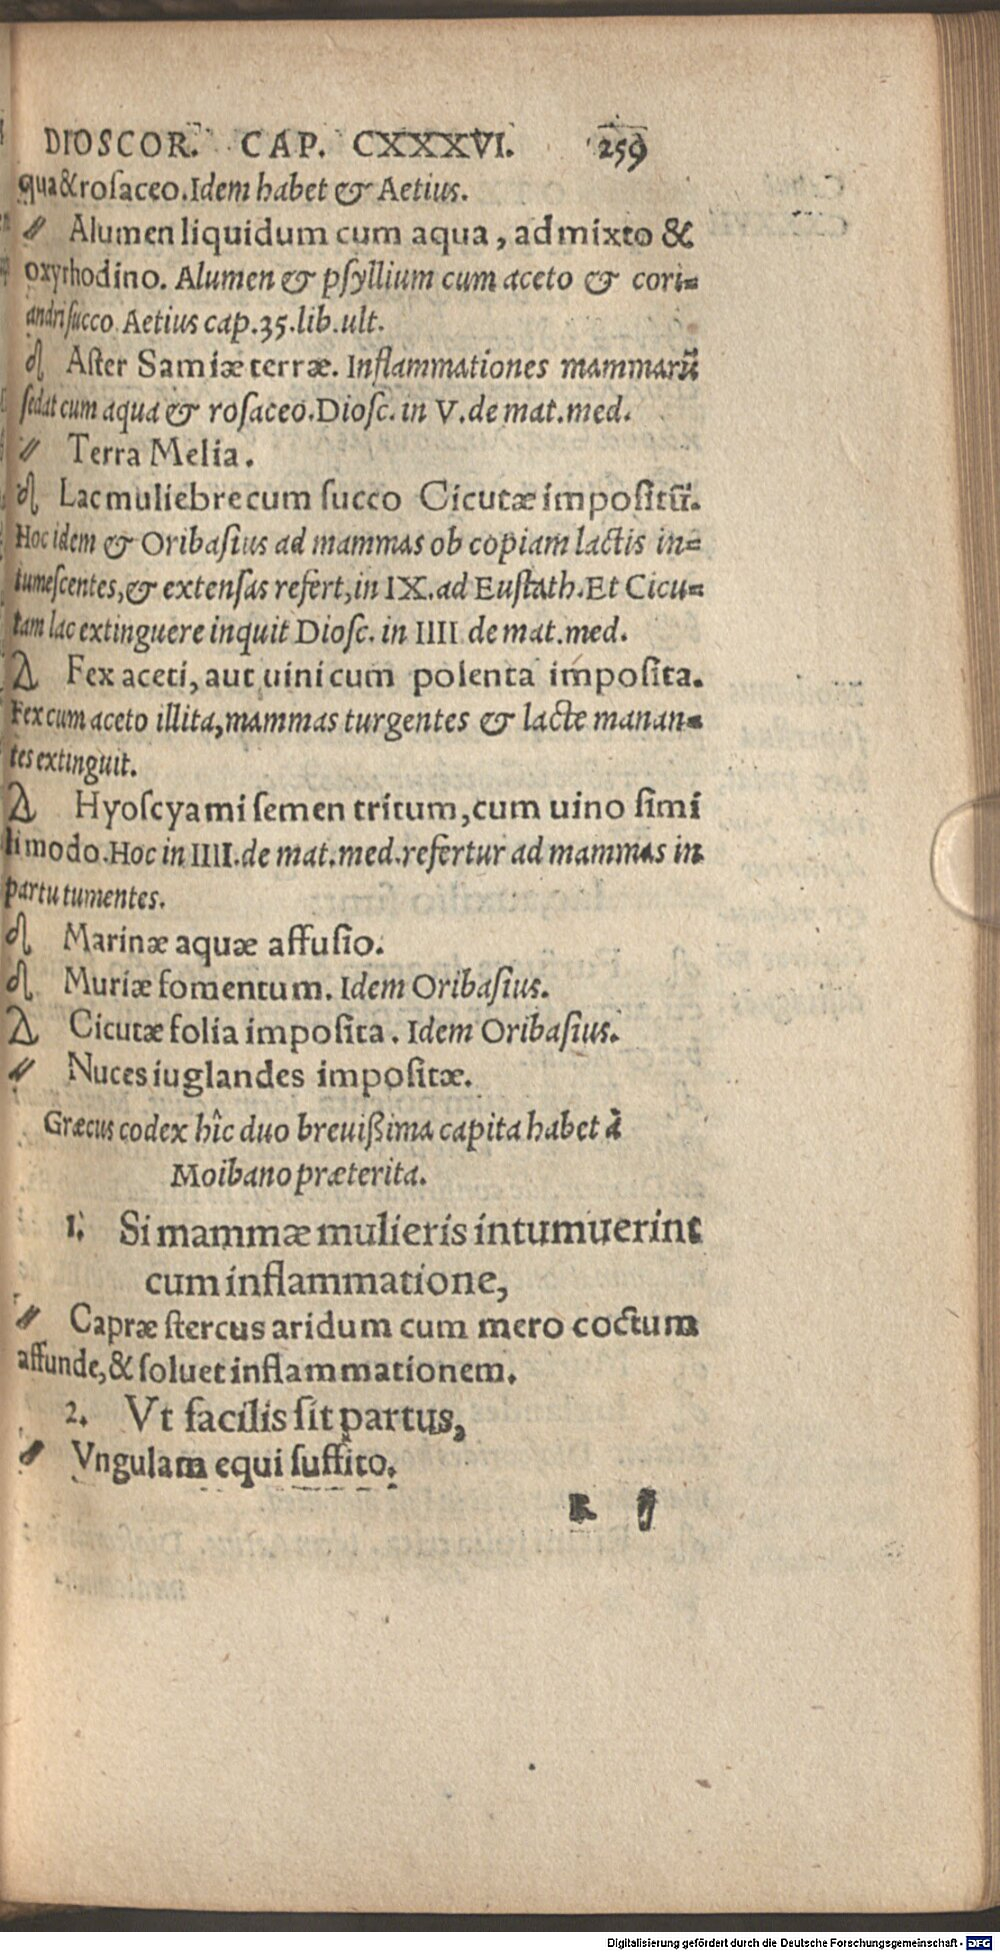 DIOSCOR. CAP. CXXXVI. 259
qua & rosaceo. Idem habet & Aetius.
〃 Alumen liquidum cum aqua, admixto &
oxyrhodino. Alumen & psyllium cum aceto & cori-
andri succo. Aetius cap.35.lib.ult.
Aster Samiæ terræ. Inflammationes mammarū
sedat cum aqua & rosaceo. Diosc. in V. de mat. med.
〃 Terra Melia.
Lac muliebre cum succo Cicutæ impositū.
Hoc idem & Oribasius ad mammas ob copiam lactis in-
tumescentes, & extensas refert, in IX. ad Eustath. Et Cicu-
tam lac extinguere inquit Diosc. in IIII de mat. med.
Fex aceti, aut uini cum polenta imposita.
Fex cum aceto illita, mammas turgentes & lacte manan-
tes extinguit.
Hyoscyami semen tritum, cum uino simi
li modo. Hoc in IIII. de mat. med. refertur ad mammas in
partu tumentes.
Marinæ aquæ affusio.
Muriæ fomentum. Idem Oribasius.
Cicutæ folia imposita. Idem Oribasius.
〃 Nuces iuglandes impositæ.
Græcus codex hîc duo breuißima capita habet à
Moibano præterita.
1. Si mammæ mulieris intumuerint
cum inflammatione,
〃 Capræ stercus aridum cum mero coctum
affunde, & soluet inflammationem.
2. Vt facilis sit partus,
〃 Vngulam equi suffito.
R
Digitalisierung gefördert durch die Deutsche Forschungsgemeinschaft - DFG